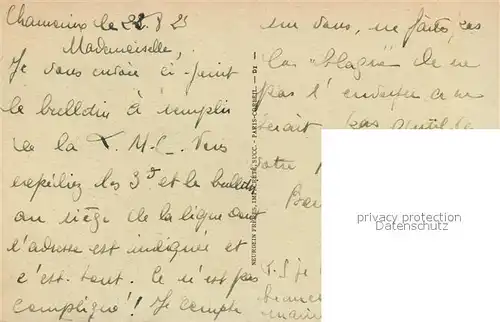 Chamonix le 22.8 25
Mademoiselle,
Je vous envoie ci-joint
le bulletin à remplir
de la L.M.C. Vous
expédiez les 3f et le bulletin
au siège de la ligue dont
l'adresse est indiquée et
c'est tout. Ce n'est pas
compliqué! Je compte
sur vous, ne faites pas
la "blague" de ne
pas l'envoyer ce ne
serait pas gentil de
votre
P.S je
NEURDEIN FRÈRES, IMP. CRÉTÉ, SUCC. - PARIS-CORBEIL
privacy protection
watermark